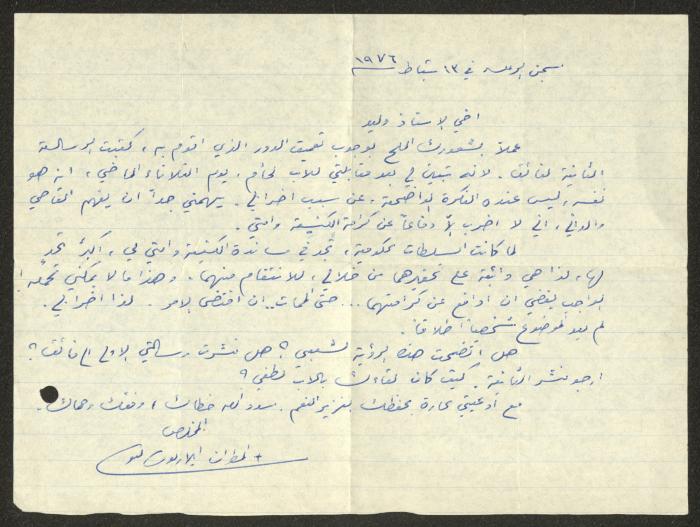 سجن الرملة في ١٣ شباط ١٩٧٦
اخي الاستاذ وليد
عملاً بشعورك الملح بوجوب تعميق الدور الذي اقوم به، كتبت الرسالة
الثانية لفائق. لانه تبين لي بعد مقابلتي للاب لحام، يوم الثلاثاء الماضي، انه هو
نفسه، ليس عنده الفكرة الواضحة، عن سبب اضرابي. يهمني جداً ان يفهم القاصي
والداني، اني لا اضرب الا دفاعاً عن كرامة الكنيسة وامتي.
لما كانت السلطات الحكومية، تجد في مساندة الكنيسة وامتي لي، اكبر تحدٍ
لها، لذا هي واثقة على تحقيرهما من خلالي، للانتقام منهما. وهذا ما لا يمكنني تحمله!
الواجب يقضي ان ادافع عن كرامتهما... حتى الممات.. ان اقتضى الامر. لذا اضرابي.
لم يعد الموضوع شخصياً اطلاقاً.
هل اتضحت هذه الرؤية لشعبي؟ هل نشرت رسالتي الاولى الى فائق؟
ارجو نشر الثانية. كيف كان لقاءك بالاب لطفي؟
مع ادعيتي الحارة بحفظك لغزير النعم. سدد الله خطاك، وفقك وحماك.
المخلص
+ المطران ايلاريون كبوجي